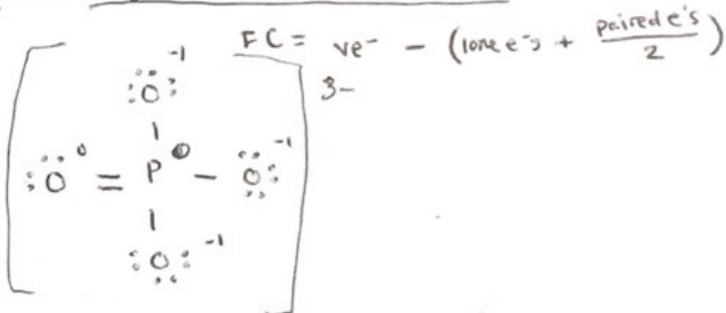 FC = ve⁻ - (lone e⁻s + paired e's / 2)
3-
:Ö: -1
:Ö ⁰ = P ⁰ - Ö: -1
:O: -1